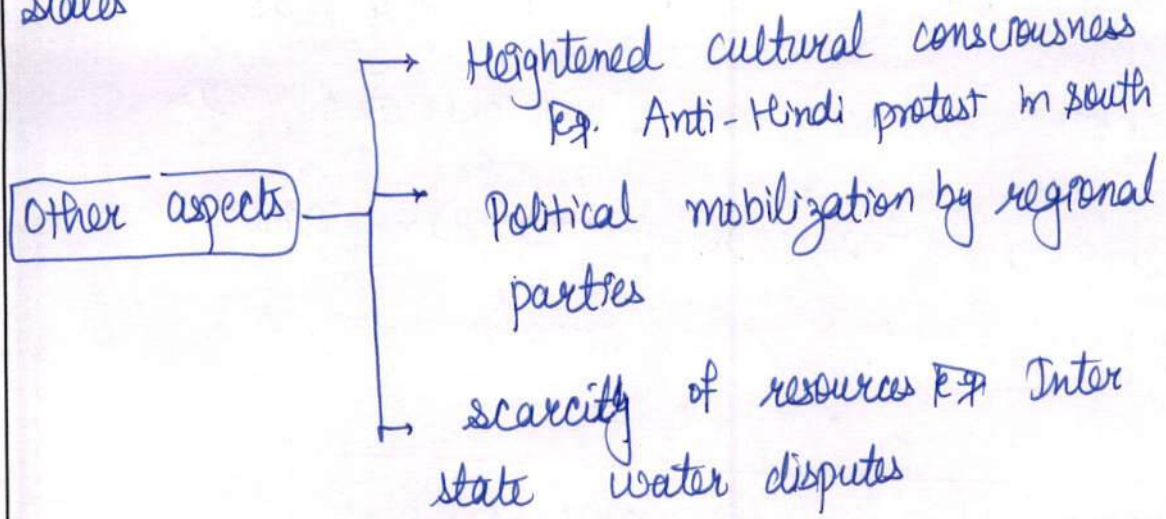 states
Heightened cultural consciousness
eg. Anti-Hindi protest in south
Other aspects
Political mobilization by regional
parties
scarcity of resources eg Inter
state water disputes